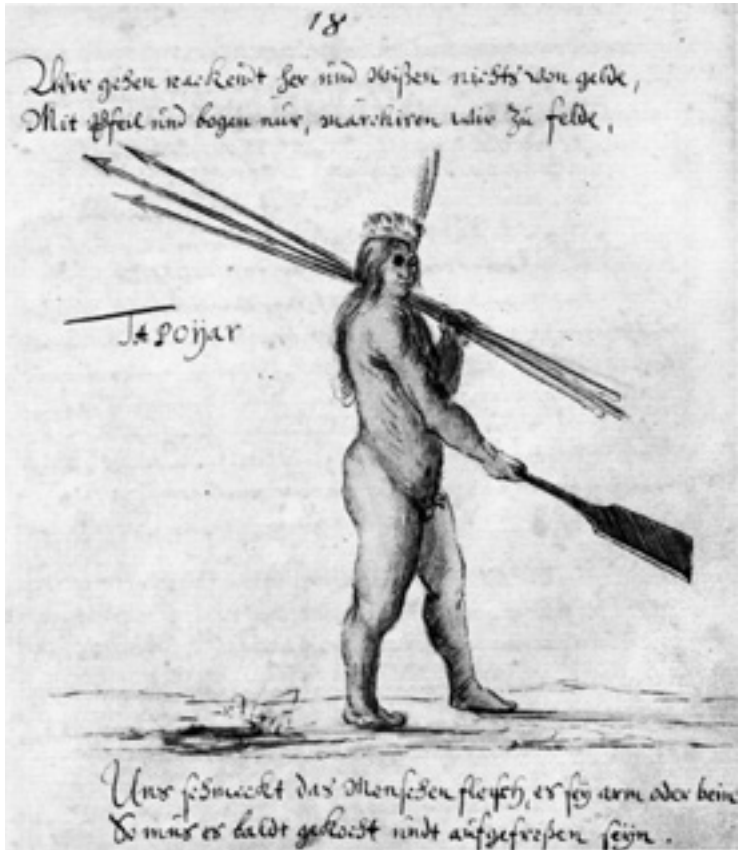 18
Wir gehen nackendt her und wißen nichts von gelde,
Mit Pfeil und bogen nur, marchiren wir zu felde,
TAPOÿar
Uns schmeckt das Menschen fleisch, es seÿ arm oder bein
So mus es baldt gekocht undt aufgefreßen seÿn.